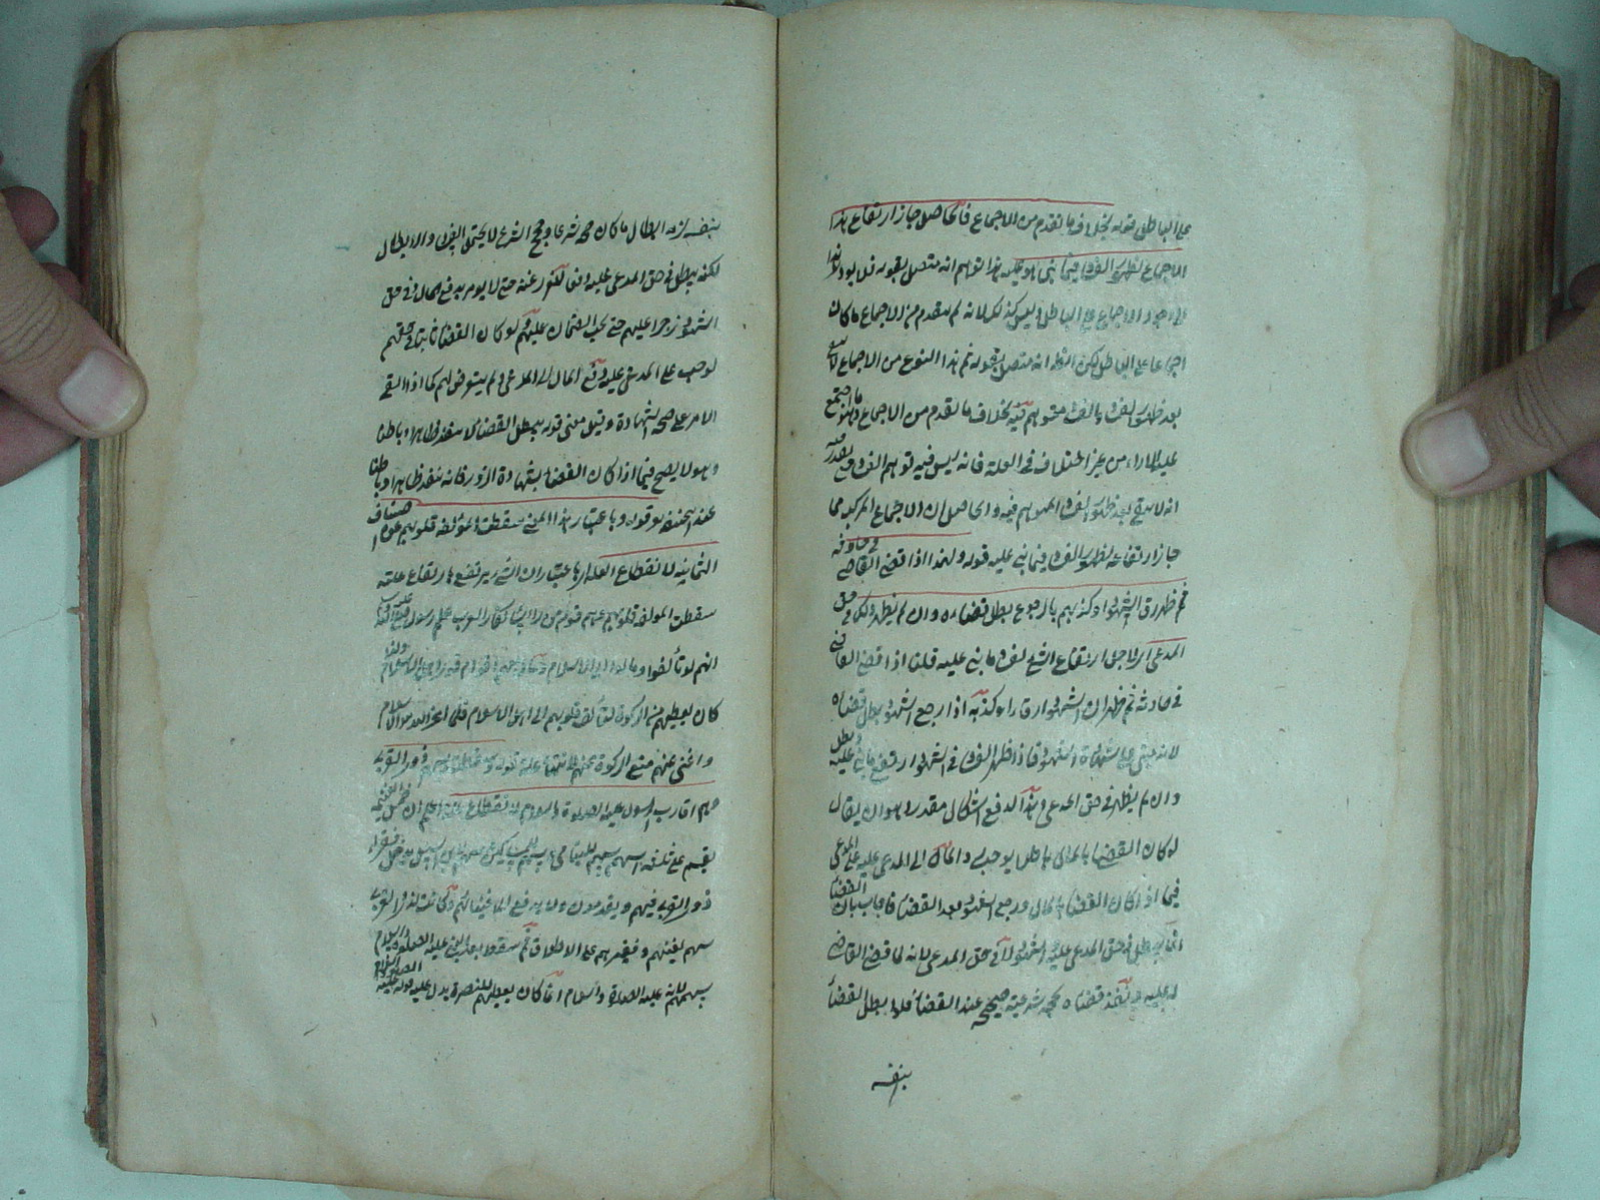 على الباطل قوله بخلاف ما تقدم من الاجماع فالحاصل جاز ارتفاع هذا
الاجماع لظهور الفرق فيما بنى هو عليه هذا توهم انه متصل بقوله قبل
وجود الاجماع على الباطل وليس كذلك لانه لم يتقدم من الاجماع ما كان
اجماعا على الباطل لكن الظ انه متصل بقوله ثم هذا النوع من الاجماع
بعد ظهور الفرق بالفرق متوهم فيه بخلاف ما تقدم من الاجماع وهو ما اجتمع
عليه الاراء من غير اختلاف في العلة فانه ليس فيه توهم الفرق
انه لا يبقى بعد ظهور الفرق المتوهم فيه والحاصل ان الاجماع المركب مما
جاز ارتفاعه لظهور الفرق فيما بنى عليه قوله ولهذا اذا قضى القاضي في حادثة
ثم ظهر رق الشهود او كذبهم بالرجوع بطل قضاءه وان لم يظهر ذلك في حق
المدعى اى لاجل ارتفاع الشئ لفرق ما بنى عليه قلنا اذا قضى القاضى
في حادثة ثم ظهر ان الشهود ارقاء او كذبه اذا رجع الشهود بطل قضاءه
لانه بنى على شهادة الشهود فاذا ظهر الفرق في الشهود ارتفع ما بنى عليه وبطل
وان لم يظهر في حق المدعى وهذا لدفع اشكال مقدر وهو ان يقال
لو كان القضاء بالمال باطلا يوجب رد المال الى المدعى عليه على المدعى
فيما اذا كان القضاء بالمال ورجع الشهود بعد القضاء فاجاب بان القضاء
انما يبطل في حق المدعى عليه والشهود لا في حق المدعى لانه لما قضى القاضى
له عليه ونفذ قضاه بحجة شرعية صحيحة عند القضاء فلو بطل القضاء
بنفسه
بنفسه لزم ابطال ما كان حجة شرعا وحجج الشرع لا يحتمل النقض والابطال
لكنه يبطل في حق المدعى عليه انفا للضرر عنه حتى لا يومر بدفع المال وفي حق
الشهود زجرا عليهم حتى يجب الضمان عليهم ثم لو كان القضاء ثابتا في حقهم
لوجب على المدعى عليه دفع المال الى المدعى ولم يتعرض لهم كما اذا انتفى
الامر على صحة الشهادة وقيل معنى قوله بطل القضاء لا ينفذ ظاهرا وباطنا
وهو لا يصح فيما اذا كان القضاء بشهادة الزور فانه ينفذ ظاهرا وباطنا
عند ابي حنيفة قوله وباعتبار هذا المعنى سقطت المؤلفة قلوبهم عن الاصناف
الثمانية لانقطاع العلة اى باعتبار ان الشئ يرتفع بارتفاع علته
سقطت المولفة قلوبهم عنهم قوم من رؤساء كفار العرب على رسول الله عليه
انهم لو تألفوا ومالوا الى الاسلام
كان يعطيهم من الزكوة لتألف قلوبهم الى الاسلام فلما اعز الله الاسلام
واغنى عنهم منع الزكوة عنهم لانتهاء علته قوله وسقط سهم ذوى القربى
وهم اقارب الرسول عليه الصلوة والسلام لانقطاع علته اعلم ان خمس الغنيمة
يقسم على ثلثة اسهم سهم لليتامى وسهم للمساكين وسهم لابن السبيل يدخل فقراء
ذوى القربى فيهم ويقدمون ولا يدفع الى اغنيائهم وكانت لذوى القربى
سهم لغنيهم وفقيرهم على الاطلاق ثم سقط بعد النبى عليه الصلوة والسلام
سهمهم لانه عليه الصلوة والسلام انما كان يعطيهم للنصرة يدل عليه قوله عليه الصلوة والسلام